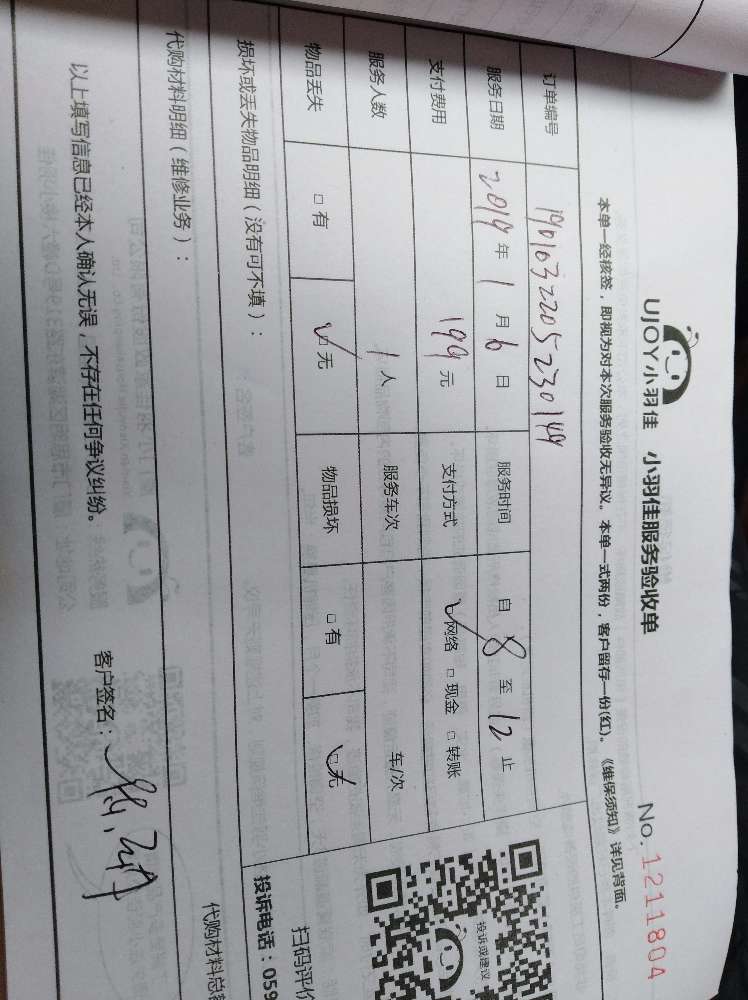 UJOY小羽佳 小羽佳服务验收单
No. 1211804
本单一经核签，即视为对本次服务验收无异议。本单一式两份，客户留存一份(红)。《维保须知》详见背面。
订单编号 1901032205230149
服务日期 2019年1月6日 服务时间 自8至12止
支付费用 199元 支付方式 ☑网络 □现金 □转账
服务人数 1人 服务车次 车/次
物品丢失 □有 ☑无 物品损坏 □有 ☑无
损坏或丢失物品明细（没有可不填）：
代购材料明细（维修业务）：
代购材料总
以上填写信息已经本人确认无误，不存在任何争议纠纷。
客户签名：
投诉或建议
扫码评价
投诉电话：059